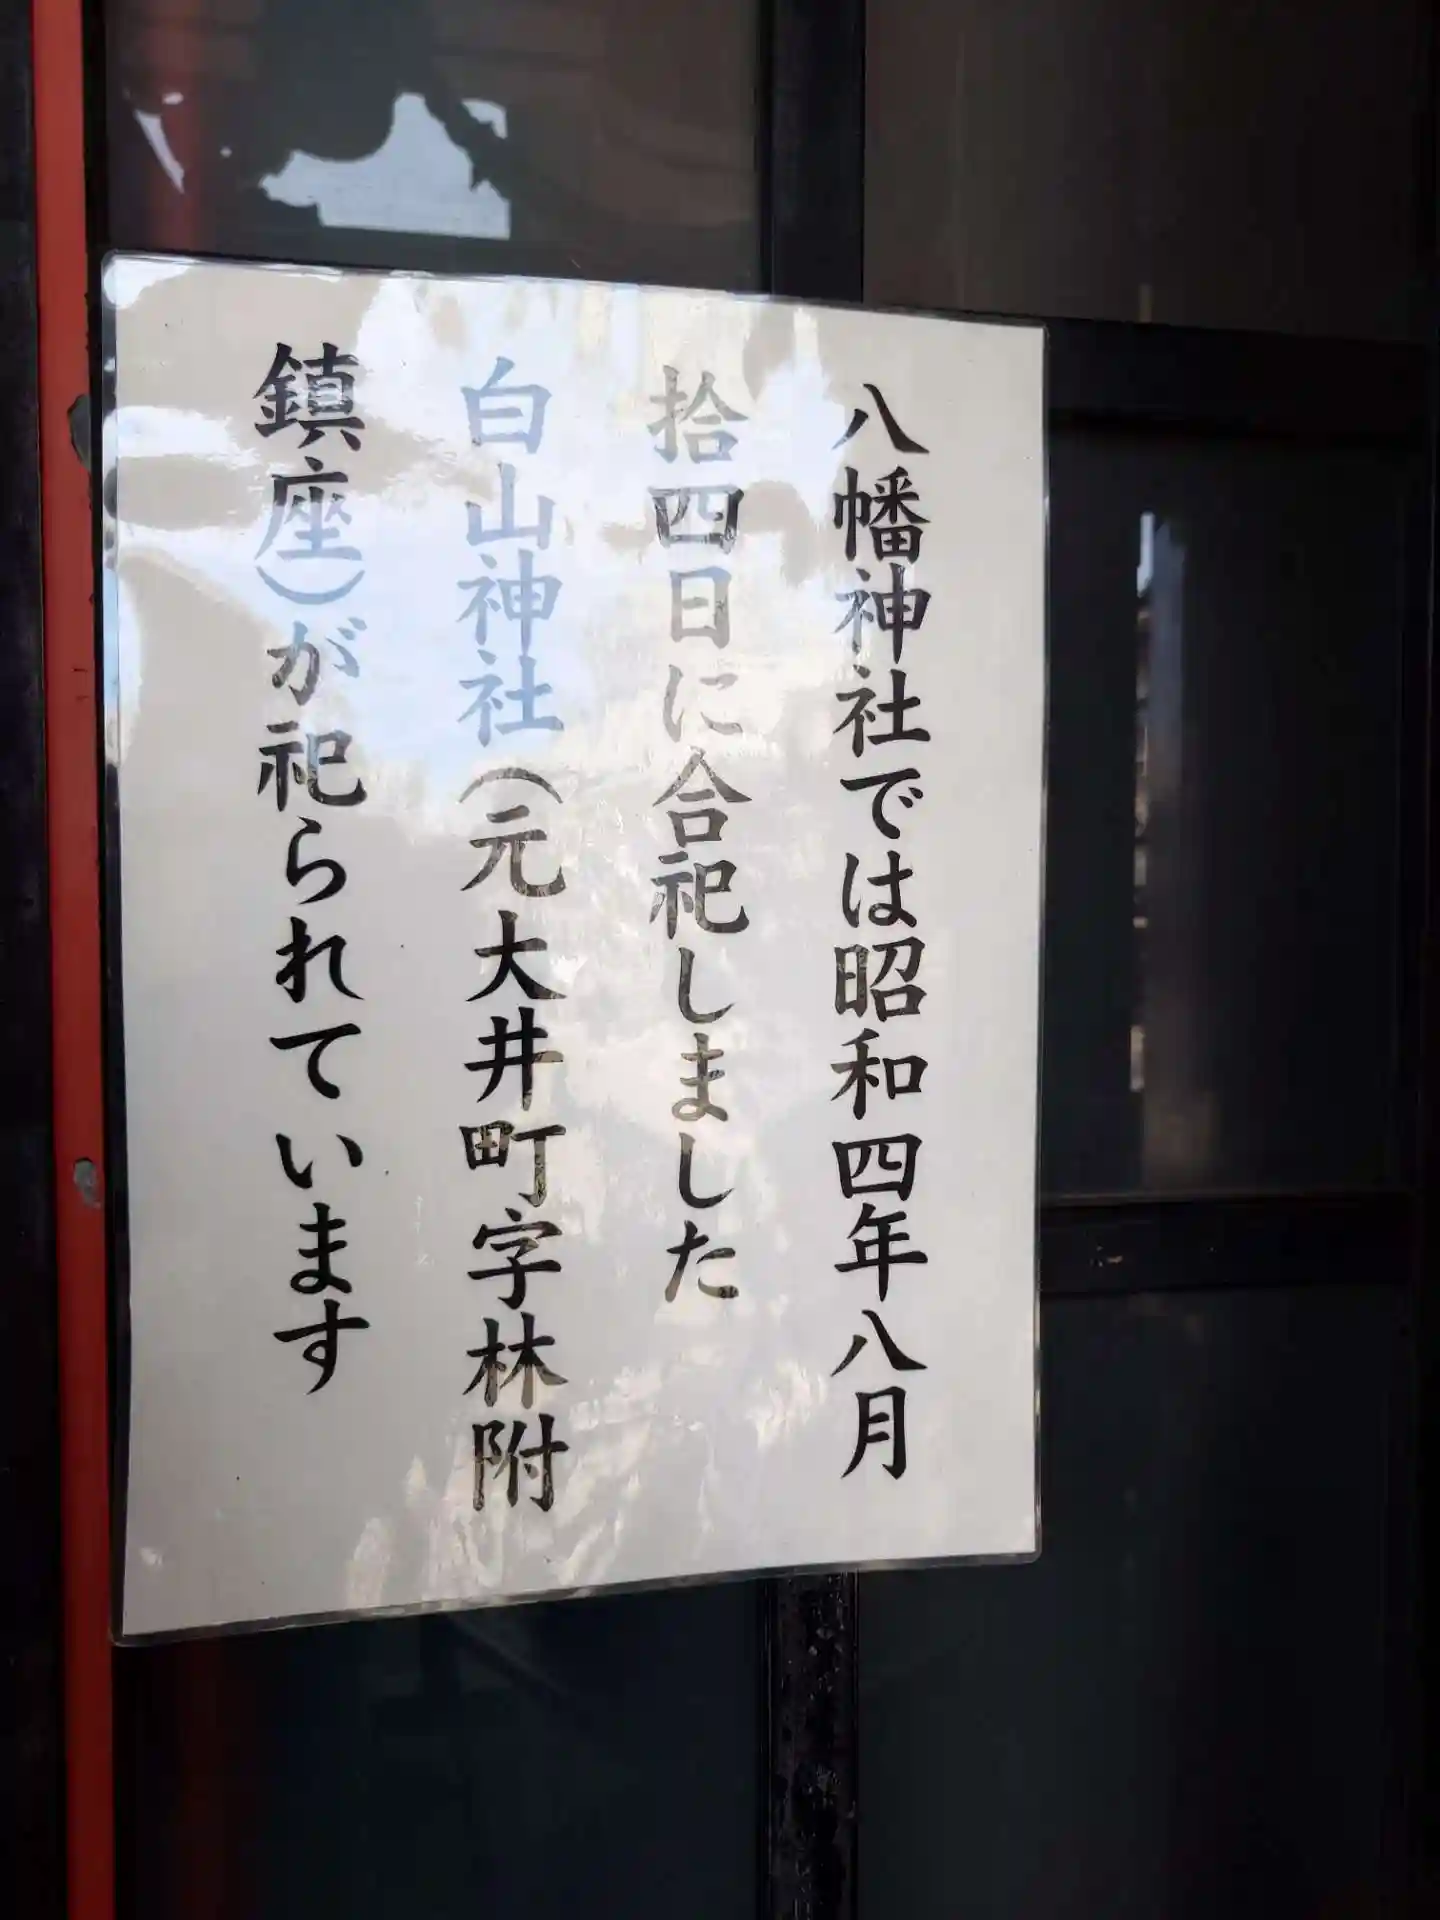 八幡神社では昭和四年八月
拾四日に合祀しました
白山神社（元大井町字林附
鎮座）が祀られています